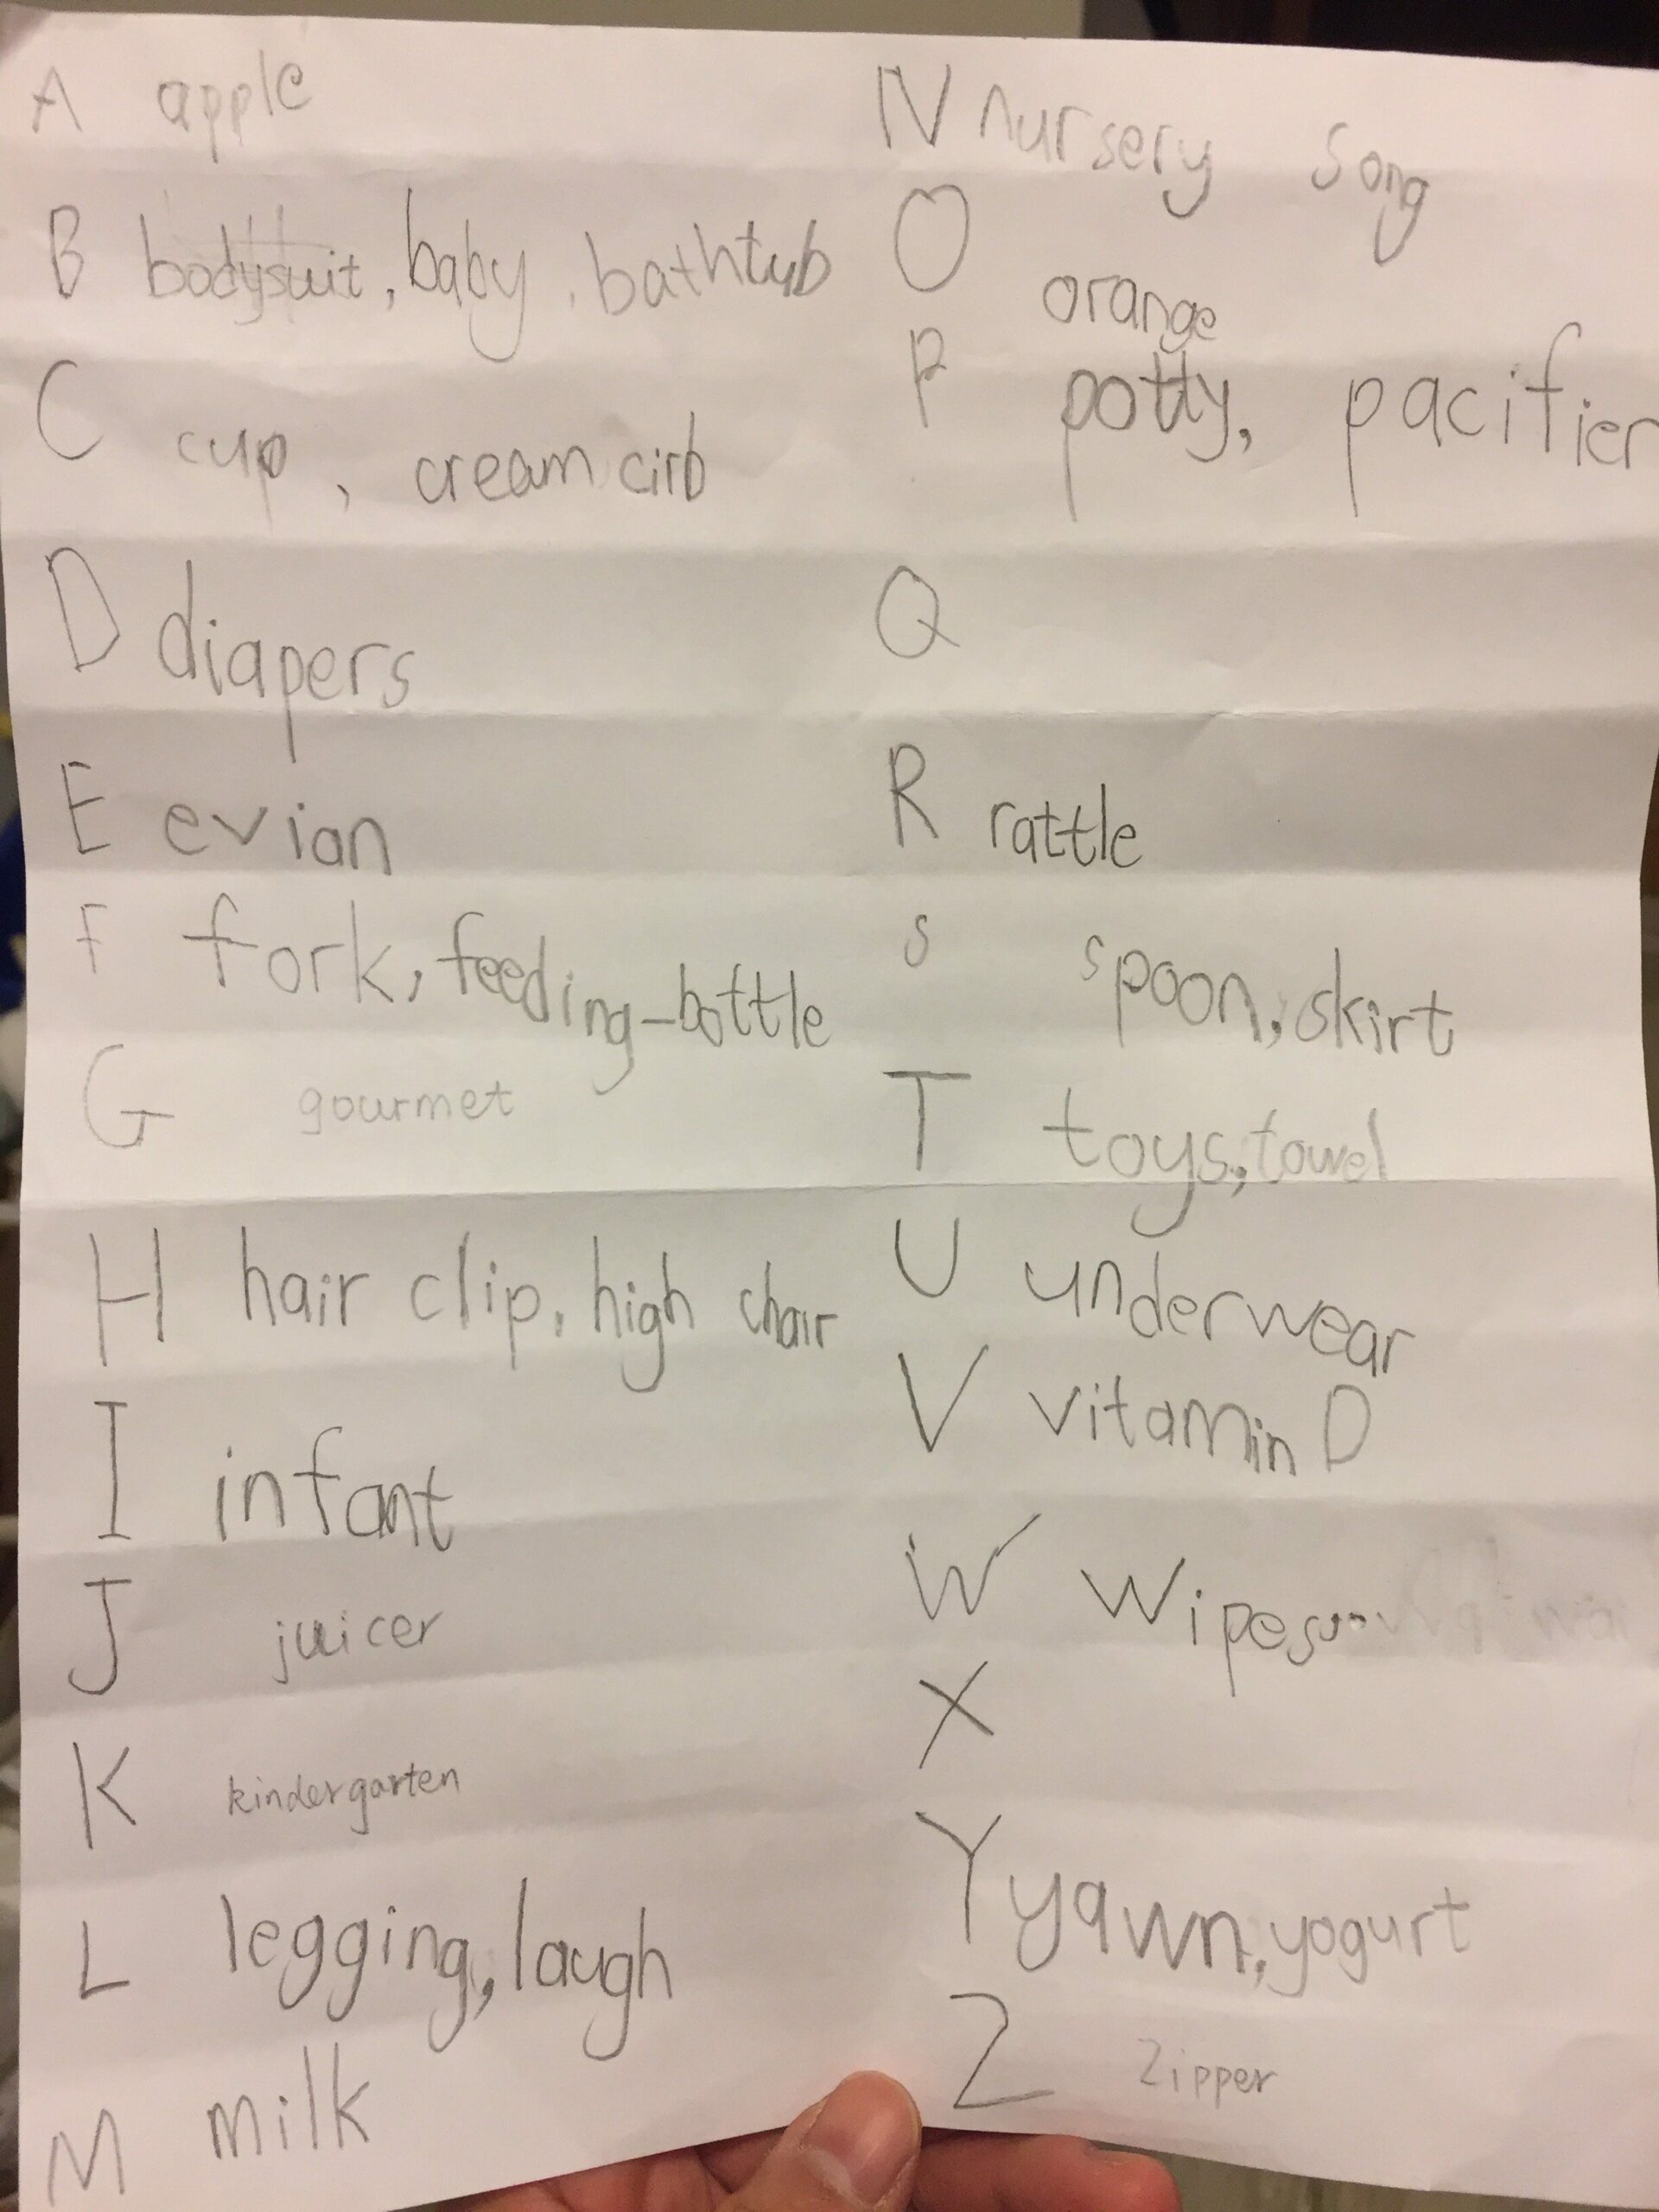 A apple
B bodysuit, baby, bathtub
C cup, cream cirb
D diapers
E evian
F fork, feeding-bottle
G gourmet
H hair clip, high chair
I infant
J juicer
K kindergarten
L legging, laugh
M milk
N nursery song
O orange
P potty, pacifier
Q
R rattle
S spoon, skirt
T toys, towel
U underwear
V vitamin D
W wipes
X
Y yawn, yogurt
Z zipper